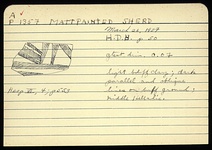 A
P 1357 MATTPAINTED SHERD
March 20, 1959
H.D.B. p. 50
gtest dim. 0.07
light buff clay; dark
parallel and oblique
lines on buff ground;
Middle Helladic.